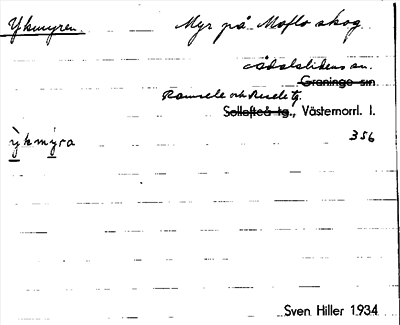 Ykmyren. Myr på Moflo skog.
Ådalslidens sn.
Graninge sn
Ramsele och Resele tg.
Sollefteå tg., Västernorrl. l.
ỳkmýra 356
Sven Hiller 1934